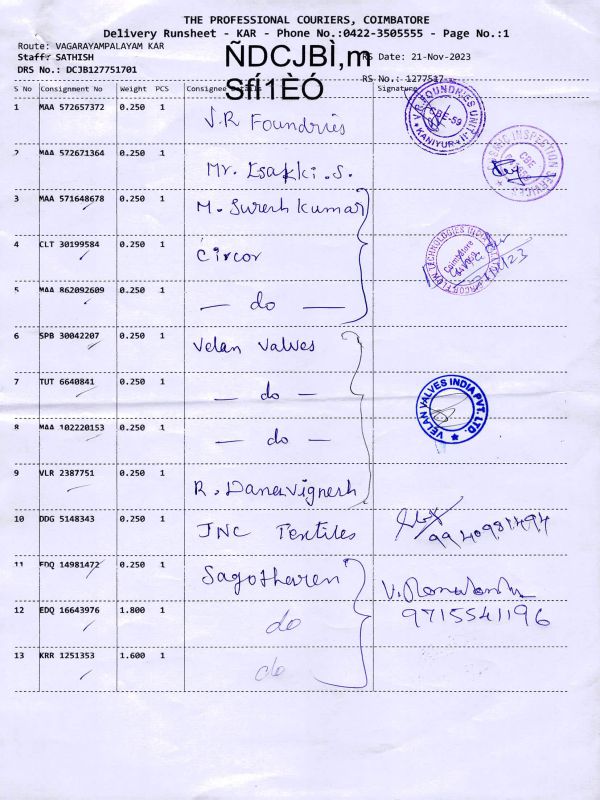 THE PROFESSIONAL COURIERS, COIMBATORE
Delivery Runsheet - KAR - Phone No.:0422-3505555 - Page No.:1
Route: VAGARAYAMPALAYAM KAR
Staff: SATHISH
ÑDCJBÌ,m
RS Date: 21-Nov-2023
DRS No.: DCJB127751701
SfÍ1ÈÓ
RS No.: 1277517
S No Consignment No Weight PCS Consignee Details Signature
1 MAA 572657372 0.250 1 V.R Foundries
2 MAA 572671364 0.250 1 Mr. Esakki.S.
3 MAA 571648678 0.250 1 M. Suresh Kumar
4 CLT 30199584 0.250 1 Circor
5 MAA 862092609 0.250 1 — do —
6 SPB 30042207 0.250 1 Velan Valves
7 TUT 6640841 0.250 1 — do —
8 MAA 102220153 0.250 1 — do —
VELAN VALVES INDIA PVT. LTD.
9 VLR 2387751 0.250 1 R. Danavignesh
10 DDG 5148343 0.250 1 JNC Textiles
11 EDQ 14981472 0.250 1 Sagotharen
12 EDQ 16643976 1.800 1 do 9715541196
13 KRR 1251353 1.600 1 do